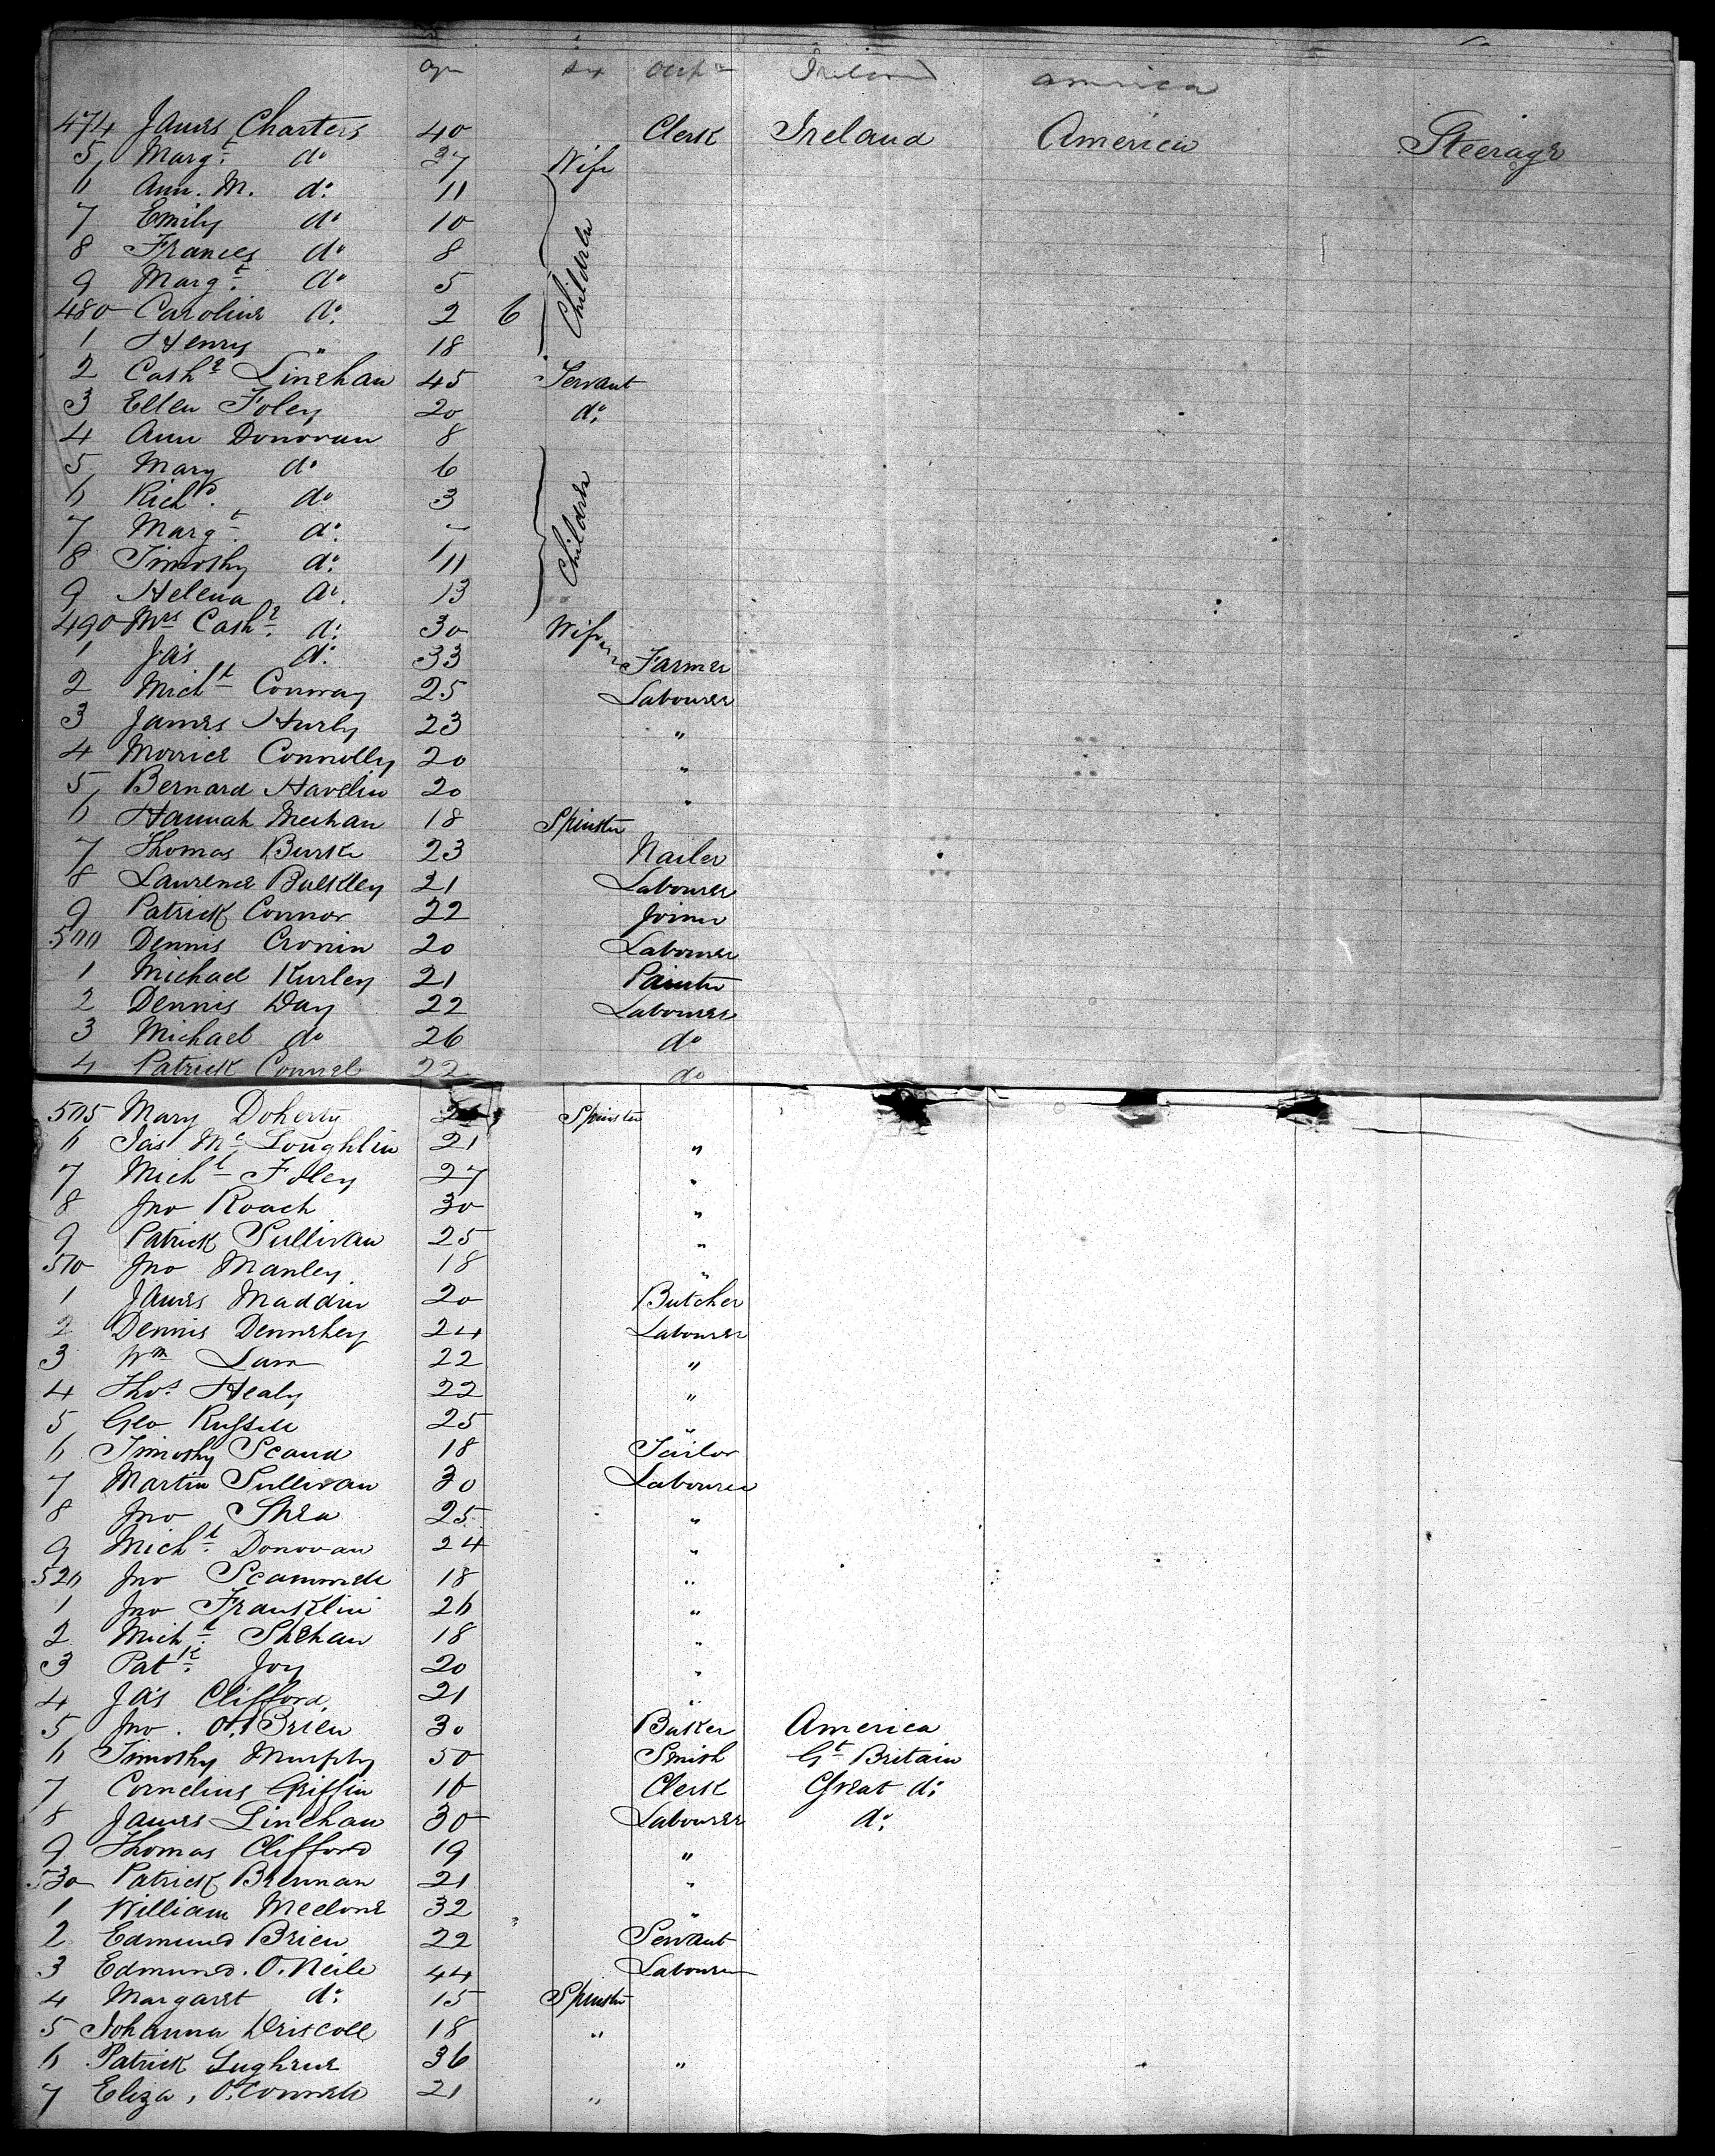 Age Sex Occpn Ireland America
474 James Charters 40 Clerk Ireland America Steerage
5 Margt. do 37 Wife
6 Ann. M. do: 11
7 Emily do 10
8 Frances do 8 Children
9 Margt. do 5
480 Caroline do: 2 6
1 Henry " 18
2 Cathe Linehan 45 Servant
3 Ellen Foley 20 do:
4 Ann Donovan 8
5 Mary do 6
6 Richd. do 3
7 Margt. do: Children
8 Timothy do: 11
9 Helena do. 13
490 Mrs Cathe. do: 30 Wife
1 Jas do: 33 Farmer
2 Michl Conway 25 Labourer
3 James Hurly 23 "
4 Morrice Connolly 20 "
5 Bernard Havelin 20 "
6 Hannah Meehan 18 Spinster
7 Thomas Burke 23 Nailer
8 Laurence Bulkley 21 Labourer
9 Patrick Connor 22 Joiner
500 Dennis Cronin 20 Labourer
1 Michael Kurley 21 Painter
2 Dennis Day 22 Labourer
3 Michael do 26 do
4 Patrick Connel 22 do
505 Mary Doherty Spinster
6 Jas McLoughlin 21 "
7 Michl Foley 27 "
8 Jno Roach 30 "
9 Patrick Sullivan 25 "
510 Jno Manley 18 "
1 James Madden 20 Butcher
2 Dennis Dennehey 24 Labourer
3 Wm Lam 22 "
4 Thos. Healy 22 "
5 Geo Russell 25 "
6 Timothy 18 Tailor
7 Martin Sullivan 30 Labourer
8 Jno Shea 25 "
9 Michl. Donovan 24 "
520 Jno Scannell 18 "
1 Jno Franklin 26 "
2 Michl. Shehan 18 "
3 Patk. Joy 20 "
4 Jas Clifford 21 "
5 Jno. O'Brien 30 Baker America
6 Timothy Murphy 50 Smith Gt Britain
7 Cornelius Griffin 16 Clerk Great do:
8 James Linehan 30 Labourer do:
9 Thomas Clifford 19 "
530 Patrick Brennan 21 "
1 William 32 "
2 Edmund Brien 22 Servant
3 Edmund. O. Neile 44 Labourer
4 Margaret do: 15 Spinster
5 Johanna Driscoll 18 "
6 Patrick Lughrue 36 "
7 Eliza, O'Connell 21 "